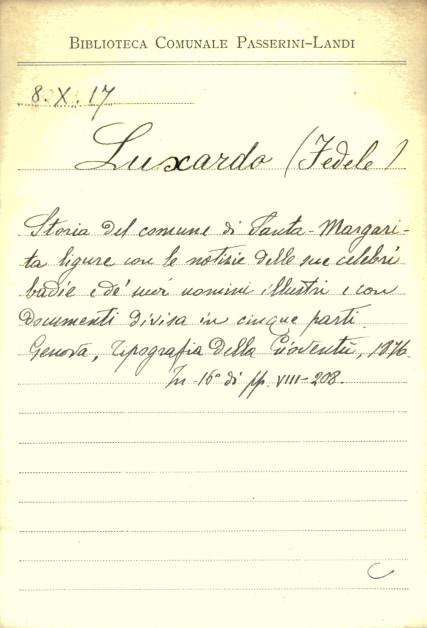 Biblioteca Comunale Passerini-Landi
8. X. 17
Luxardo (Fedele)
Storia del comune di Santa-Margari-
ta ligure con le notizie delle sue celebri
badie e de' suoi uomini illustri e con
documenti divisa in cinque parti.
Genova, Tipografia della Gioventù, 1876
In-16° di pp. VIII-208.
C